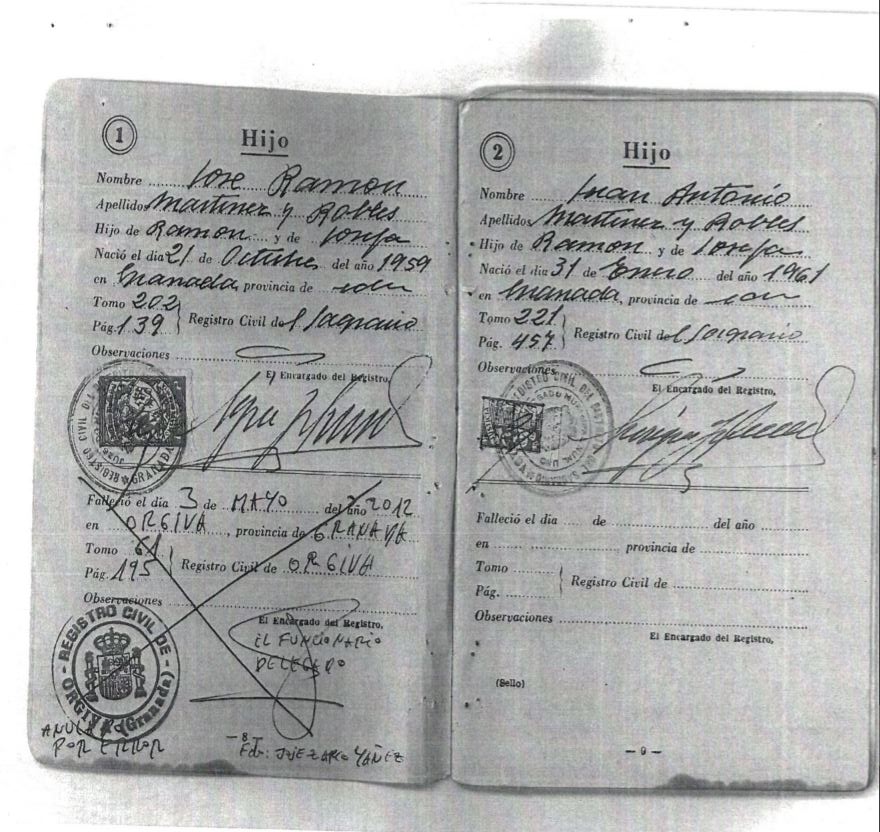 1
Hijo
Nombre José Ramon
Apellidos Martinez y Robles
Hijo de Ramon y de Josefa
Nació el dia 21 de Octubre del año 1959
en Granada, provincia de idem
Tomo 202
Pág. 139 Registro Civil del Sagrario
Observaciones
El Encargado del Registro,
REGISTRO CIVIL DEL
GRANADA
Falleció el día 3 de MAYO del año 2012
en ORGIVA provincia de GRANADA
Tomo 61
Pág. 195 Registro Civil de ORGIVA
Observaciones
El Encargado del Registro,
EL FUNCIONARIO
DELEGADO
- REGISTRO CIVIL DE -
ORGIVA (Granada)
ANULADO
POR ERROR
— 8 —
Fdo: YAÑEZ
2
Hijo
Nombre Juan Antonio
Apellidos Martinez y Robles
Hijo de Ramon y de Josefa
Nació el dia 31 de Enero del año 1961
en Granada, provincia de idem
Tomo 221
Pág. 457 Registro Civil del Sagrario
Observaciones
El Encargado del Registro,
Falleció el día de del año
en provincia de
Tomo
Pág. Registro Civil de
Observaciones
El Encargado del Registro,
(Sello)
— 9 —